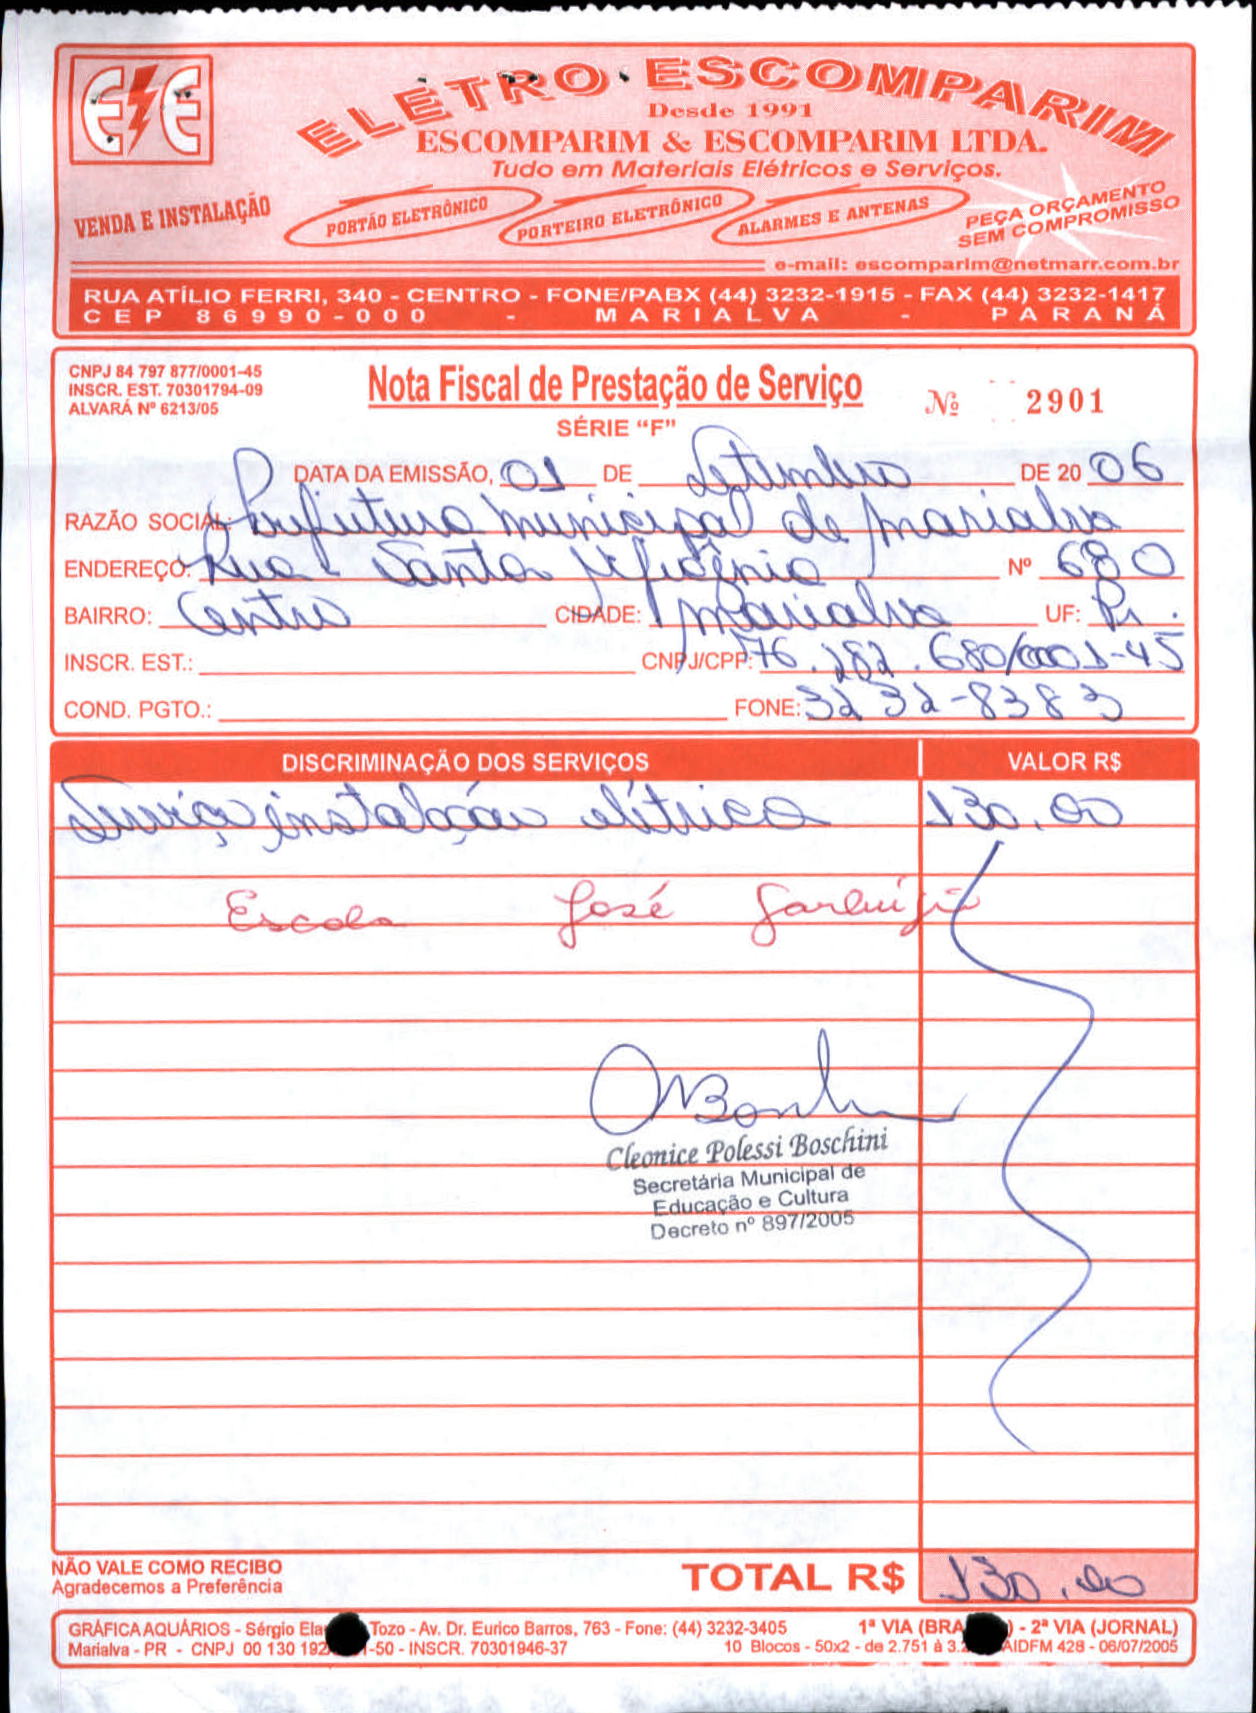 ELETRO ESCOMPARIM
Desde 1991
ESCOMPARIM & ESCOMPARIM LTDA.
Tudo em Materiais Elétricos e Serviços.
VENDA E INSTALAÇÃO
PORTÃO ELETRÔNICO
PORTEIRO ELETRÔNICO
ALARMES E ANTENAS
PEÇA ORÇAMENTO
SEM COMPROMISSO
e-mail: escomparim@netmarr.com.br
RUA ATÍLIO FERRI, 340 - CENTRO - FONE/PABX (44) 3232-1915 - FAX (44) 3232-1417
CEP 86990-000 - MARIALVA - PARANÁ
CNPJ 84 797 877/0001-45
INSCR. EST. 70301794-09
ALVARÁ Nº 6213/05
Nota Fiscal de Prestação de Serviço
SÉRIE "F"
Nº 2901
DATA DA EMISSÃO, 01 DE Setembro DE 20 06
RAZÃO SOCIAL: Prefeitura municipal de marialva
ENDEREÇO: Rua Santa Efigênia Nº 680
BAIRRO: Centro CIDADE: marialva UF: Pr.
INSCR. EST.: CNPJ/CPF: 76.282.680/0001-45
COND. PGTO.: FONE: 3232-8383
DISCRIMINAÇÃO DOS SERVIÇOS VALOR R$
Serviço instalação elétrica 130,00
Escola José
Cleonice Polessi Boschini
Secretária Municipal de
Educação e Cultura
Decreto nº 897/2005
NÃO VALE COMO RECIBO
Agradecemos a Preferência
TOTAL R$ 130,00
GRÁFICA AQUÁRIOS - Sérgio Tozo - Av. Dr. Eurico Barros, 763 - Fone: (44) 3232-3405 1ª VIA - 2ª VIA (JORNAL)
Marialva - PR - CNPJ 00 130 192 -50 - INSCR. 70301946-37 10 Blocos - 50x2 - de 2.751 à AIDFM 428 - 06/07/2005